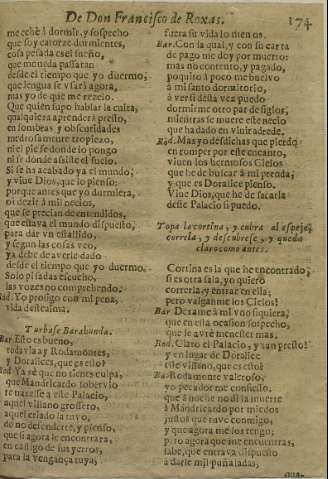 De Don Francisco de Roxas. 174
me echè à dormir, y sospecho
que soy catorze durmientes,
cosa pesada es el sueño,
que moneda passaràn
desde el tiempo que yo duermo,
que lengua se vsarà agora,
mas yo sè que me rezelo.
Que quien supo hablar la culta,
qualquiera aprenderà presto,
en sombras y obscuridades
me do samente tropiezo,
ni el pie sè donde lo pongo
ni se donde assiste el suelo.
Si se ha acabado ya el mundo,
y viue Dios, que lo pienso:
porque antes que yo durmiera,
oì dezir à mil necios,
que se precian de entendidos,
que estava el mundo dispuesto,
para dar vn estallido,
y segun las cosas veo,
ya debe de averle dado
desde el tiempo que yo duermo.
Solo pisadas escucho,
las vozes no comprehendo.
Rod. Yo prosigo con mi pena,
vida destealma.
Turbase Barahunda.
Bar Esto es bueno,
todavia ay Rodamontes,
y Doralices, que es esto?
Rod Ya sè que no sientes culpa,
que Mandricardo sobervio
te traxesse a este Palacio,
aquel villano grossero,
aquel er lado la tuvo,
de no defenderte, y pienso,
que si agora le encontrara,
en castigo de sus yerros,
para la vengança tuya,
fuera su vida lo menos.
Bar. Con la qual, y con su carta
de pago me doy por muerto:
mas no contento, y pagado,
poquito à poco me buelvo
à mi santo dormitorio,
à ver si desta vez puedo
dormirme otro par de siglos,
mientras se muere este necio
que ha dado en vivir adrede.
Rod. Mas yo desdichas que pierdo
en romper por este encanto,
viuen los hermosos Cielos
que he de buscar à mi prenda;
y que es Doralice pienso.
Viue Dios, que he de sacarla
deste Palacio si puedo.
Topa la cortina, y entra al espejo,
correla, y descubrese, y queda
claro como antes.
Cortina es la que he encontrado,
si es otra sala, yo quiero
correrla, y entrar en ella;
pero valganme los Cielos!
Bar Dexame à mì vno siquiera,
que en esta ocasion sospecho,
que le avrè menester mas.
Rod. Claro el Palacio, y tan presto!
y en lugar de Doralice
este villano, que es esto?
Ba. Rodamonte valeroso,
yo pecador me confiesso,
que à noche no dì la muerte
à Mandricardo por miedos
justos que tuve conmigo,
y que agora me los tengo;
pero agora que me encuentras,
sabe, que entrava dispuesto
à darle mil puñaladas,